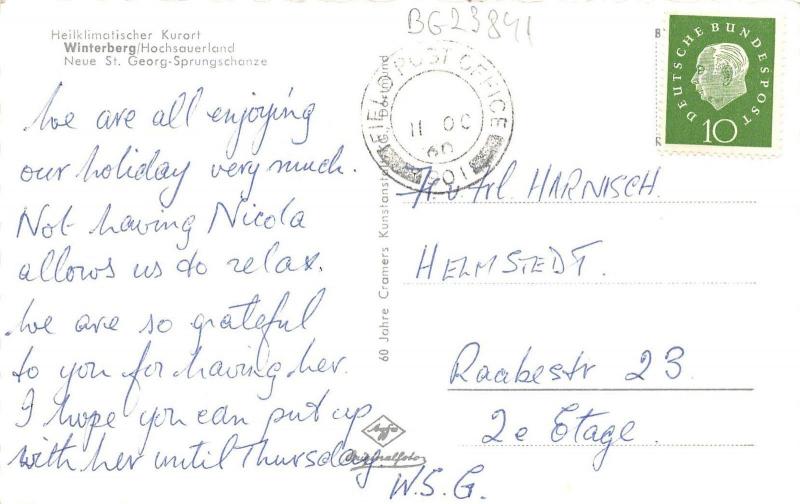 BG23841
Heilklimatischer Kurort
Winterberg/Hochsauerland
Neue St. Georg-Sprungschanze
We are all enjoying
our holiday very much.
Not having Nicola
allows us to relax.
We are so grateful
to you for having her.
I hope you can put up
with her until Thursday
W.S.G.
60 Jahre Cramers Kunstanstalt Dortmund
Agfa
Originalfoto
FIELD POST OFFICE
11 OC
60
1051
DEUTSCHE BUNDESPOST
10
HARNISCH.
HELMSTEDT.
Raabestr 23.
2e Etage.